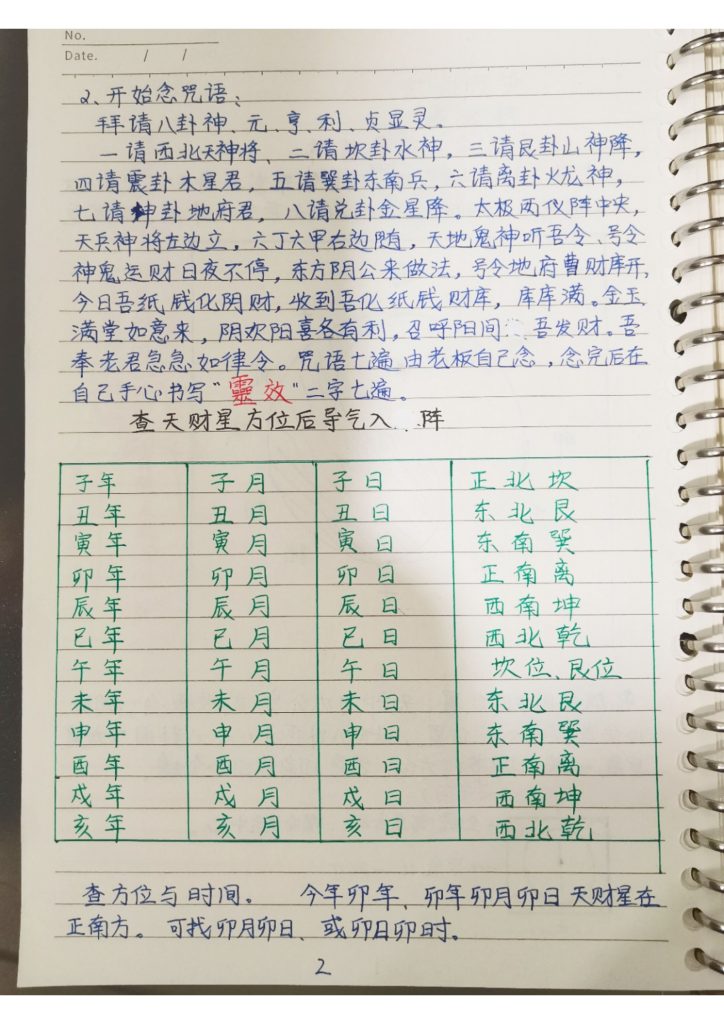 No.
Date. / /
2、开始念咒语：
拜请八卦神、元、亨、利、贞显灵。
一请西北天神将、二请坎卦水神，三请艮卦山神降，
四请震卦木星君，五请巽卦东南兵，六请离卦火龙神，
七请坤卦地府君，八请兑卦金星降。太极两仪阵中央，
天兵神将左边立，六丁六甲右边随，天地鬼神听吾令、号令
神鬼运财日夜不停，东方阴公来做法，号令地府曹财库开，
今日吾纸钱化阴财，收到吾化纸钱财库，库库满。金玉
满堂如意来，阴欢阳喜各有利，召呼阳间吾发财。吾
奉老君急急如律令。咒语七遍由老板自己念，念完后在
自己手心书写“靈效”二字七遍。
查天财星方位后导气入阵
子年 子月 子日 正北坎
丑年 丑月 丑日 东北艮
寅年 寅月 寅日 东南巽
卯年 卯月 卯日 正南离
辰年 辰月 辰日 西南坤
巳年 巳月 巳日 西北乾
午年 午月 午日 坎位、艮位
未年 未月 未日 东北艮
申年 申月 申日 东南巽
酉年 酉月 酉日 正南离
戌年 戌月 戌日 西南坤
亥年 亥月 亥日 西北乾
查方位与时间。 今年卯年、卯年卯月卯日天财星在
正南方。可找卯月卯日、或卯日卯时。
2